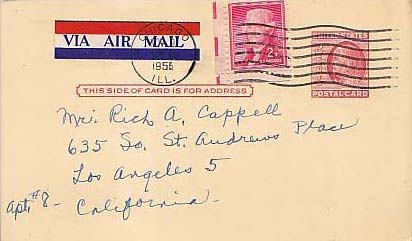 CHICAGO
1956
ILL.
VIA AIR MAIL
2¢
UNITED STATES
POSTAL CARD
THIS SIDE OF CARD IS FOR ADDRESS
Mr. Rich A. Cappell
635 So. St. Andrews Place
Los Angeles 5
Apt. #8- California.